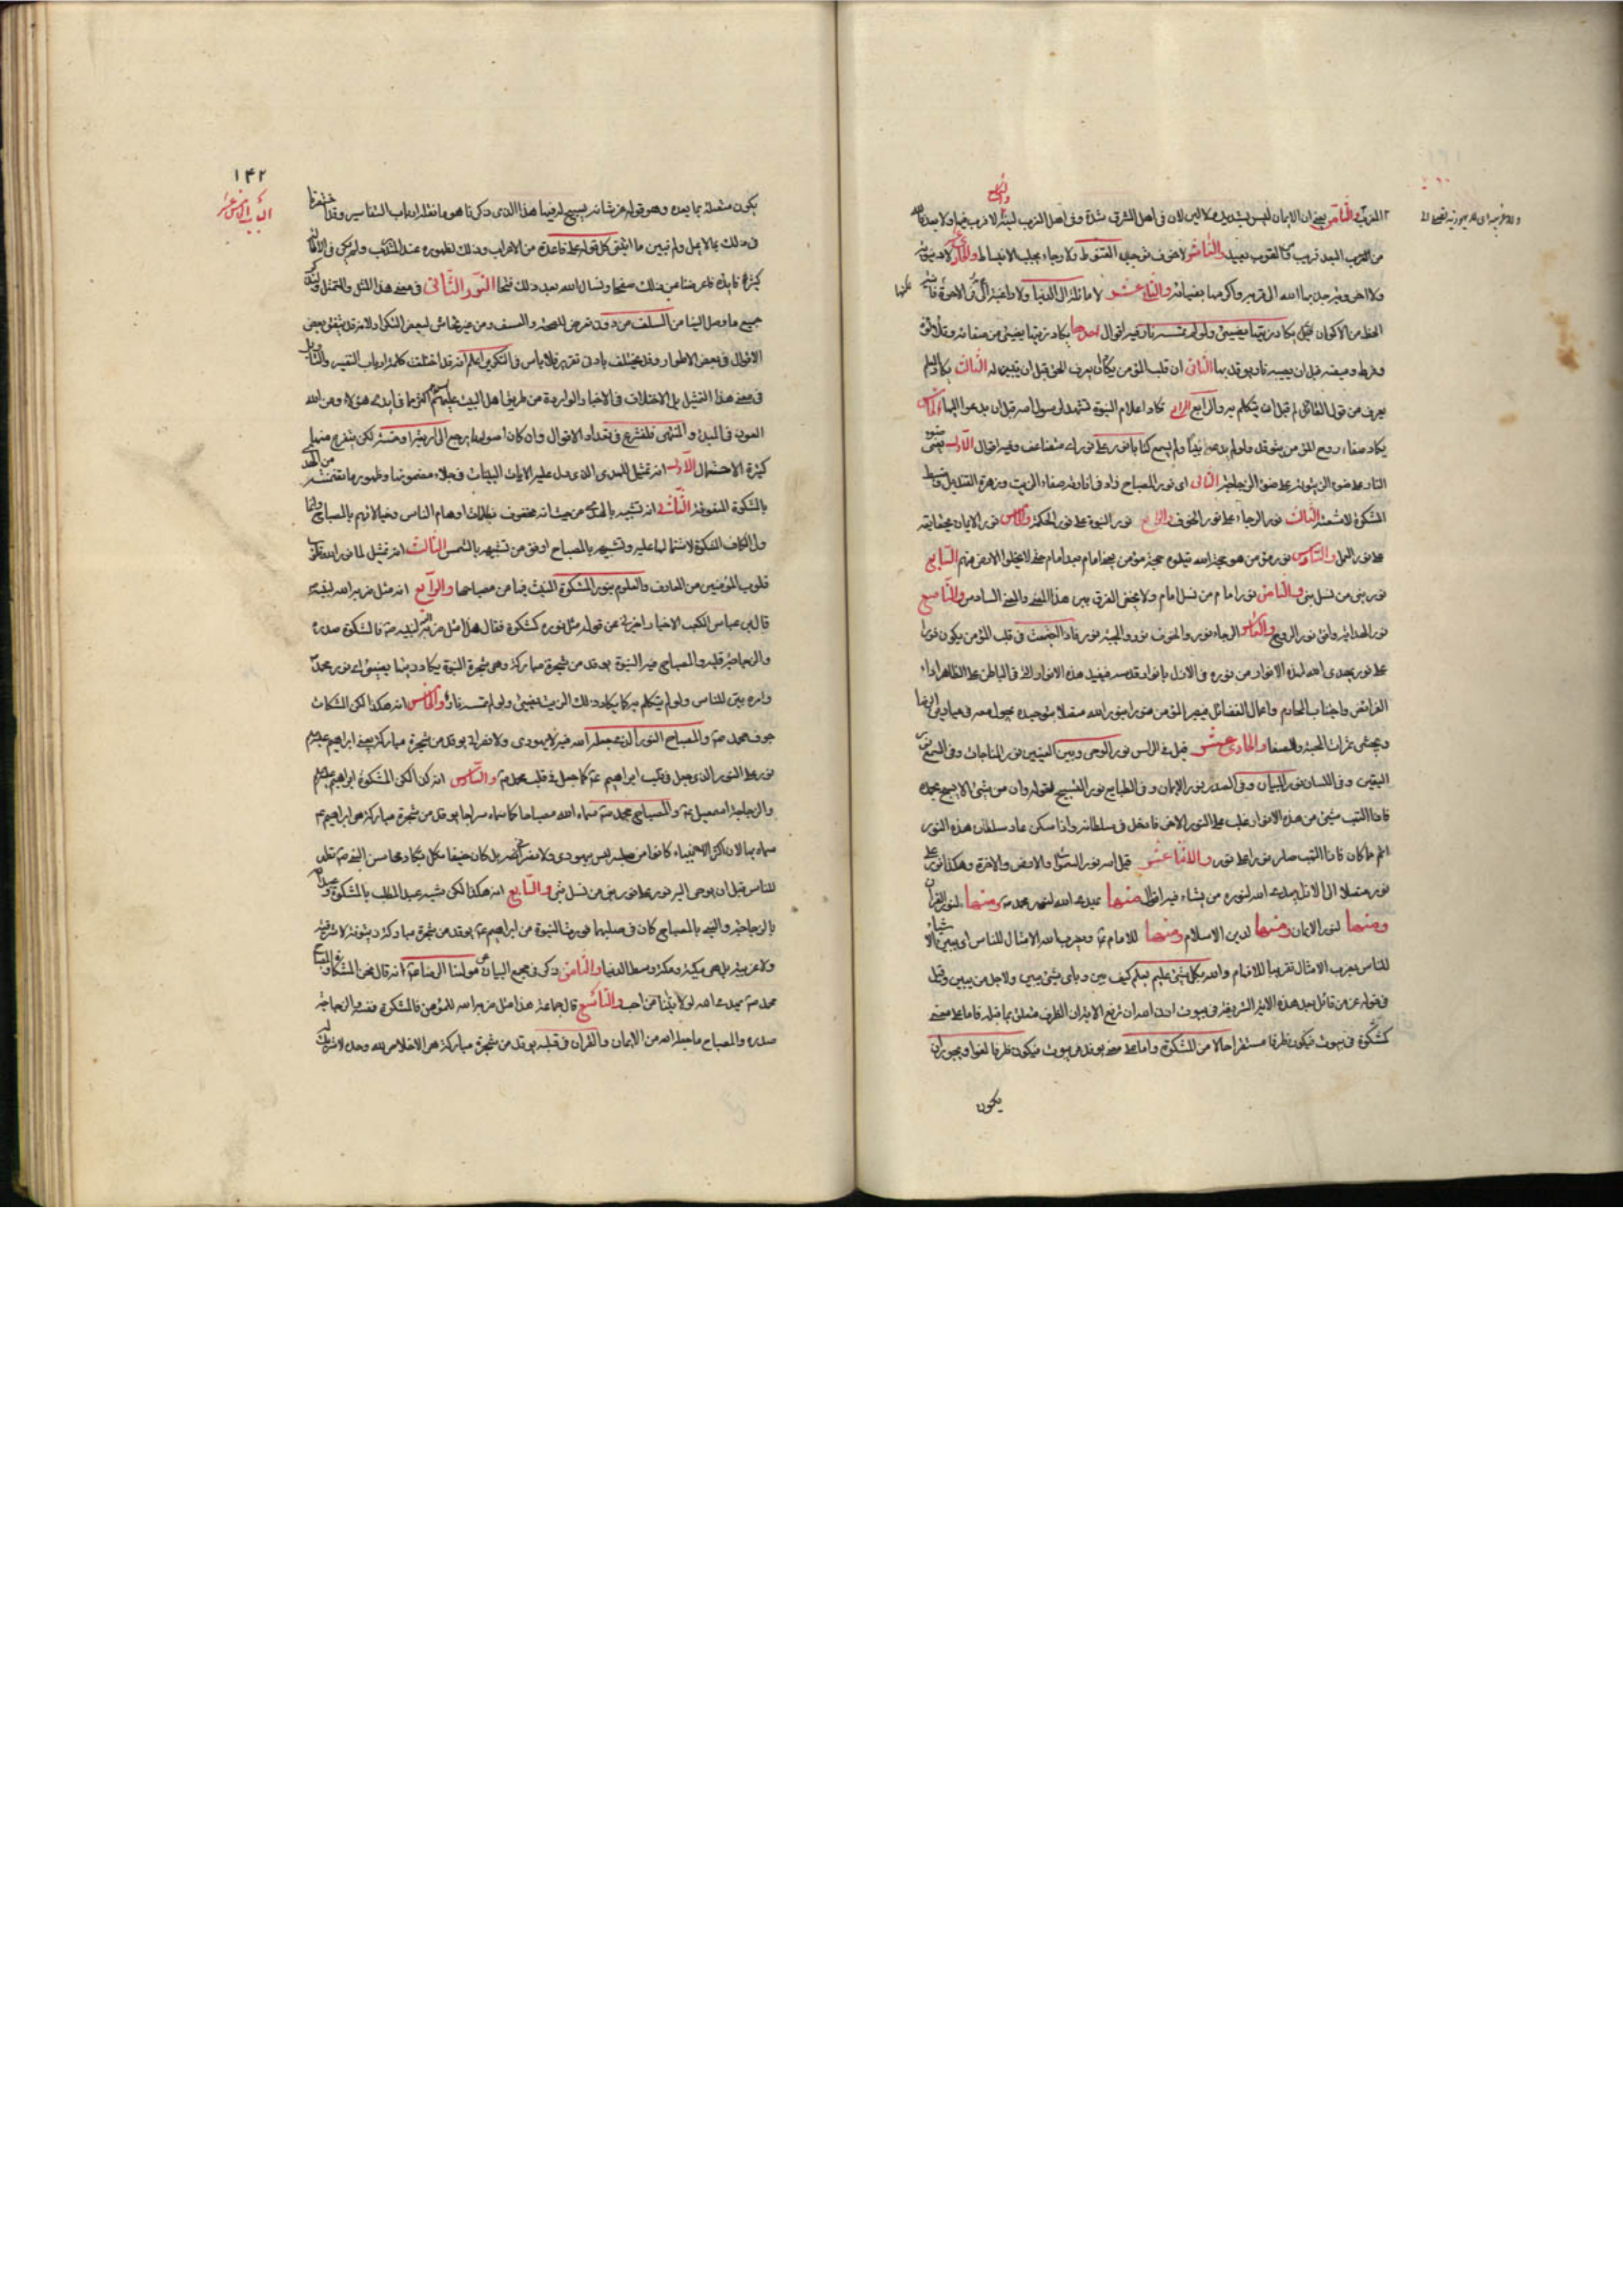 المغرب والثامن يعنى ان الايمان ليس بشديد ولا لين لان فى اهل الشرق شدة وفى اهل الغرب لينة لا قرب فيها ولا بعد
من القرب البعد قريب القرب بعيد والعاشر لا خوف توجب القنوط ولا رجاء يجلب الانبساط والحادى عشر لا دنيوية
ولا اخروية جذبها الله الى قربه واكرمها بضيائه والثانى عشر لا مائلة الى الدنيا ولا راغبة الى الاخرة
الحظ من الاكوان قيل يكاد زيتها يضيئ ولو لم تمسسه نار وفيه اقوال احدها يكاد زيتها يضيئ من صفائه
وفرط وميضه قبل ان يصيبه نار يوقد بها الثانى ان قلب المؤمن يكاد يعرف الحق قبل ان يتبين له الثالث يكاد العلم
يعرف من قول القائل له قبل ان يتكلم به والرابع تكاد اعلام النبوة تشهد لرسول الله قبل ان يدعو اليها والخامس
يكاد صفاء روح المؤمن يتوقد ولو لم يدعه نبيا ولم يسمع كتابا نور على نور اى متضاعف وفيه اقوال الاول يعنى
النار على ضوء الزيتونة على ضوء الزجاجة الثانى اى نور المصباح زاد فى انارته صفاء الزيت وزهرة القنديل وضبط
المشكوة لاشعته الثالث نور الرجاء على نور الخوف والرابع نور النبوة على نور الحكمة والخامس نور الايمان بحقايقه
على نور العمل والسادس نور مؤمن هو حجة الله يتلوه حجة مؤمن يعنى امام بعد امام حتى لا يخلو الارض منهم السابع
نور نبى من نسل نبى والثامن نور امام من نسل امام ولا يخفى الفرق بين هذا المعنى والمعنى السادس والتاسع
نور الهداية وافق نور الروح والعاشر الرجاء نور والخوف نور والمحبة نور فاذا اجتمعت فى قلب المؤمن يكون نورا
على نور يهدى الله لهذه الانوار من نوره فى الازل بانوار قدسه فيفيد هذه الانوار التى فى الباطن على الظاهر اداء
الفرائض واجتناب المحارم واعمال الفضائل فيصير المؤمن منورا بنور الله متصلا بتوحيده يجول معه فى ميادين الرضا
ويجتنى ثمرات المحبة والصفا والحادى عشر قيل فى الراس نور الوحى وبين العينين نور المناجات وفى السمع نور
اليقين وفى اللسان نور البيان وفى الصدر نور الايمان وفى الطبايع نور التسبيح لقوله وان من شئ الا يسبح بحمده
فاذا التهب شئ من هذه الانوار غلب على النور الاخر فادخل فى سلطانه واذا سكن عاد سلطان هذه النور
اتم ما كان فاذا التهب صار نورا على نور والثانى عشر قيل اسه نور السموات والارض والاخرة وهكذا نور على
نور متصلا الى الازل يهدى الله لنوره من يشاء فيه اقوال منها يهدى الله لنور محمد ص ومنها لنور القران
ومنها لنور الايمان ومنها لدين الاسلام ومنها للامام ع ويضرب الله الامثال للناس اى يبين الاشياء
للناس بضرب الامثال تقريبا للافهام والله بكل شئ عليم يعلم كيف يبين وباى شئ يبين ولاجل من يبين وقيل
فى قوله عز من قائل بعد هذه الاية الشريفة فى بيوت اذن الله ان ترفع الاية ان الظرف متعلق بما قبله فاما على معنى
كمشكوة فى بيوت فيكون ظرفا مستقرا حالا من المشكوة واما على معنى يوقد فى بيوت فيكون ظرفا لغوا ويجوز ان
يكون
١٤٢
الباب الخامس عشر
يكون متعلقة بما بعده وهو قوله عز شانه يسبح له فيها هذا الذى ذكرنا هو ما نقله ارباب التفاسير وقد
فى ذلك بما لا يمل ولم نبين ما ابتنى كل قوله على قاعدة من الاعراب وذلك لظهوره عند المتدرب ولم يكن فى الاطالة
كثرة فايدة فاعرضنا عن ذلك صفحا ونسال الله بعد ذلك فتحا النور الثانى فى معنى هذا المثل والتمثل
جميع ما وصل الينا من السلف من دون تعرض للصحة والسقف ومن غير تحاش لبعض التكرار لانه قد يتفق بعض
الاقوال فى بعض الاطوار وقد يختلف بادنى تغيير فلا باس فى التكرير اعلم انه قد اختلفت كلمة ارباب التفسير والتاويل
فى معنى هذا التمثيل بل الاختلاف فى الاخبار الواردة من طريق اهل البيت عليهم السلم اكثر مما فى ايدى هؤلاء ومن الله
العون فى المبدء والمنتهى فلنشرع فى تعداد الاقوال وان كان اصولها يرجع الى اربعة او خمسة لكن يتفرع منها
كثرة الاحتمال الاول انه تمثيل للهدى الذى دل عليه الايات البينات فى جلاء مضمونها وظهور ما تضمنته من الهدى
بالمشكوة المنعوتة الثانى انه تشبيه بالهدى من حيث انه محفوف بظلمات اوهام الناس وخيالاتهم بالمصباح وانما
ولى الكاف المشكوة لاشتمالها عليه وتشبيهه بالمصباح اوفق من تشبيهه بالشمس الثالث انه تمثيل لما نور الله به
قلوب المؤمنين من المعارف والعلوم بنور المشكوة المنبث فيها من مصباحها والرابع انه مثل ضربه الله لنبيه
قال ابن عباس لكعب الاحبار اخبرنى عن قوله مثل نوره كمشكوة فقال هذا مثل ضربه الله لنبيه ص فالمشكوة صدره
والزجاجة قلبه والمصباح فيه النبوة يوقد من شجرة مباركة وهى شجرة النبوة يكاد زيتها يضيئ اى نور محمد
وامره يتبين للناس ولو لم يتكلم به كما يكاد ذلك الزيت يضيئ ولو لم تمسسه نار والخامس انه هكذا لكن المشكات
جوف محمد ص والمصباح النور الذى جعله الله فيه لا يهودى ولا نصرانى يوقد من شجرة مباركة يعنى ابراهيم ع
نور على النور الذى جعل فى قلب ابراهيم ع كما جعل فى قلب محمد ص والسادس انه كذا لكن المشكوة ابراهيم ع
والزجاجة اسمعيل ع والمصباح محمد ص سماه الله مصباحا كما سماه سراجا يوقد من شجرة مباركة هى ابراهيم ع
سماه بها لان اكثر الانبياء كانوا من صلبه ليس بيهودى ولا نصرانى بل كان حنيفا يكاد محاسن النبى ص تظهر
للناس قبل ان يوحى اليه نور على نور نبى من نسل نبى والسابع انه هكذا لكن شبه عبد المطلب بالمشكوة وعبد الله
بالزجاجة والنبى بالمصباح كان فى صلبهما فورث النبوة من ابراهيم ع يوقد من شجرة مباركة زيتونة لا شرقية
ولا غربية بل هى مكية ومكة وسط الدنيا والثامن ذكر فى مجمع البيان عن مولانا الرضا ع انه قال نحن المشكوة
محمد ص يهدى الله لولايتنا من احب والتاسع قال جماعة هذا مثل ضربه الله للمؤمن فالمشكوة نفسه والزجاجة
صدره والمصباح ما جعله الله من الايمان والقران فى قلبه يوقد من شجرة مباركة هى الاخلاص لله وحده لا شريك له